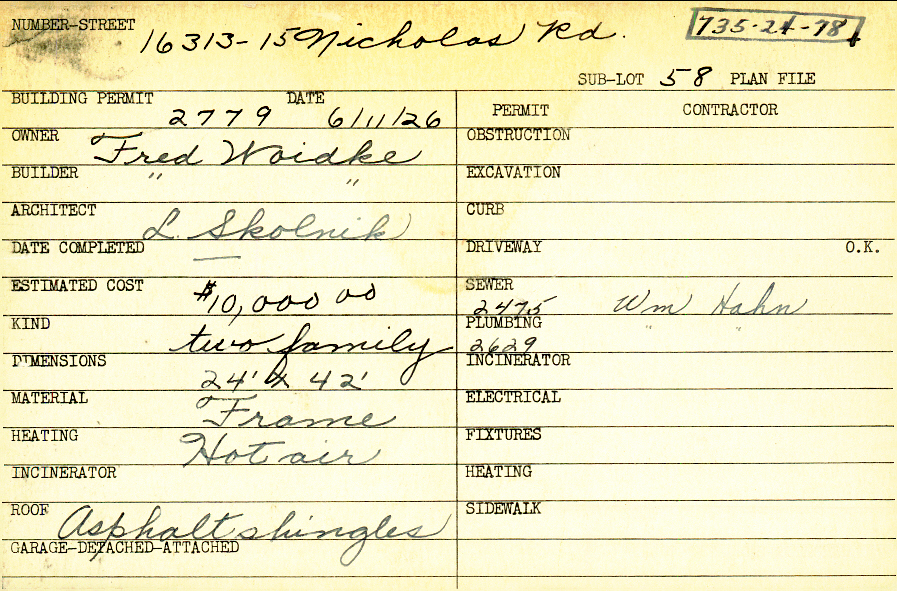 NUMBER-STREET 16313-15 Nicholas Rd. 735-24-78
SUB-LOT 58 PLAN FILE
BUILDING PERMIT 2779 DATE 6/11/26
PERMIT CONTRACTOR
OWNER Fred Woidke
OBSTRUCTION
BUILDER " "
EXCAVATION
ARCHITECT L. Skolnik
CURB
DATE COMPLETED —
DRIVEWAY O.K.
ESTIMATED COST $10,000 00
SEWER 2475 Wm Hahn
KIND two family
PLUMBING 2629 " "
DIMENSIONS 24' x 42'
INCINERATOR
MATERIAL Frame
ELECTRICAL
HEATING Hot air
FIXTURES
INCINERATOR
HEATING
ROOF Asphalt shingles
SIDEWALK
GARAGE-DETACHED-ATTACHED